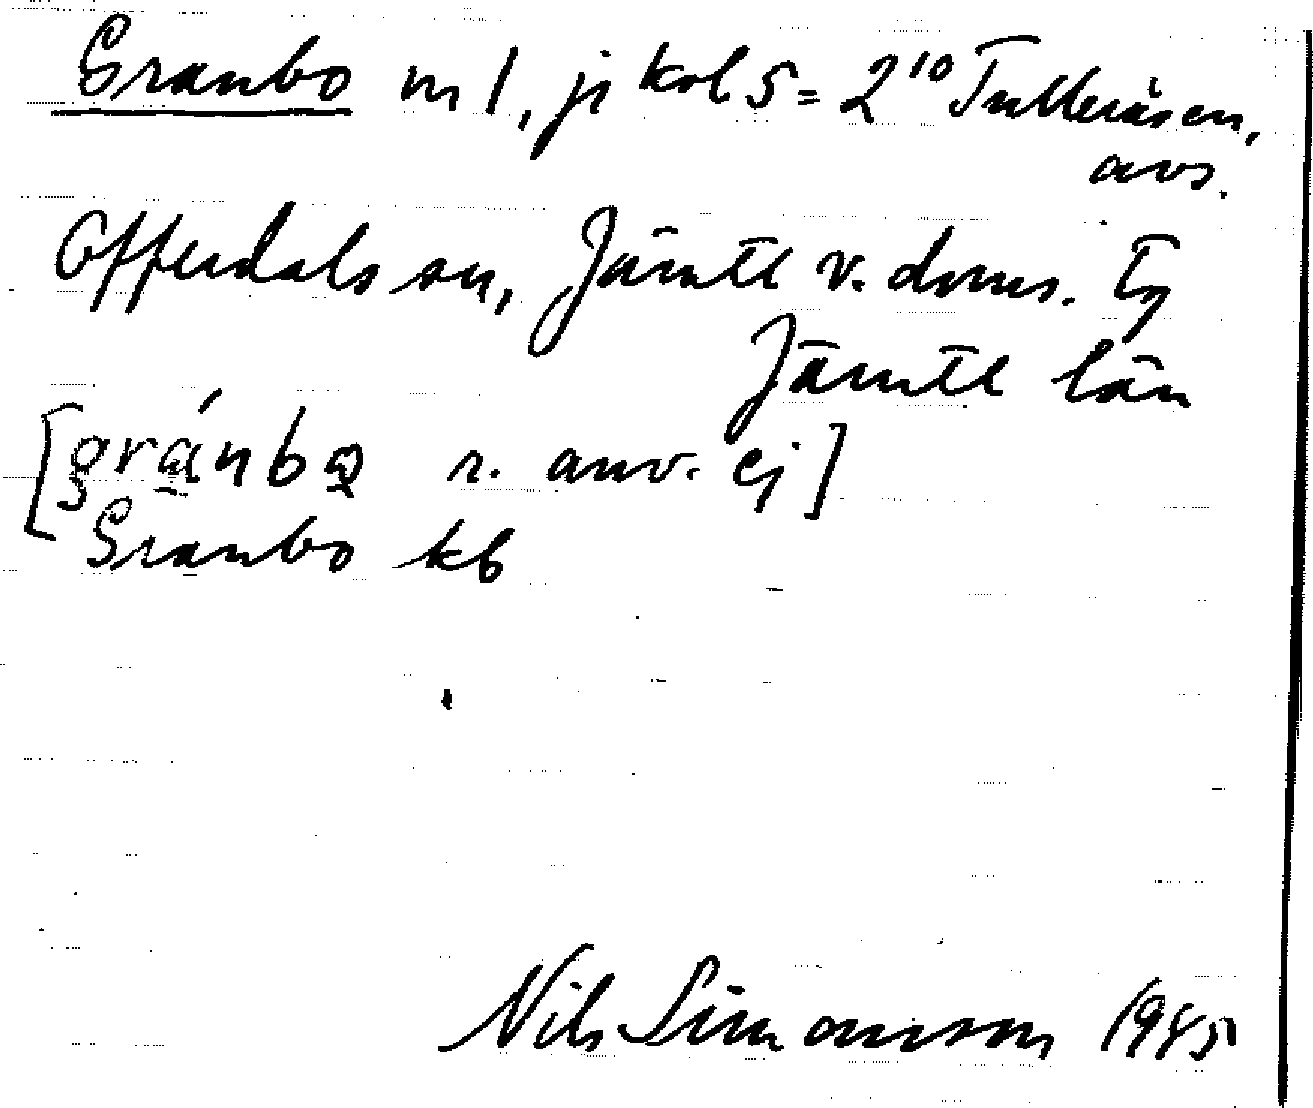 Granbo m 1, ji kol 5 = 2¹⁰ Tulleråsen,
avs.
Offerdals sn, Jämtl v. doms. tg
Jämtl län
[gránbo r. anv. ej]
Granbo kb
Nils Simonsson 1945